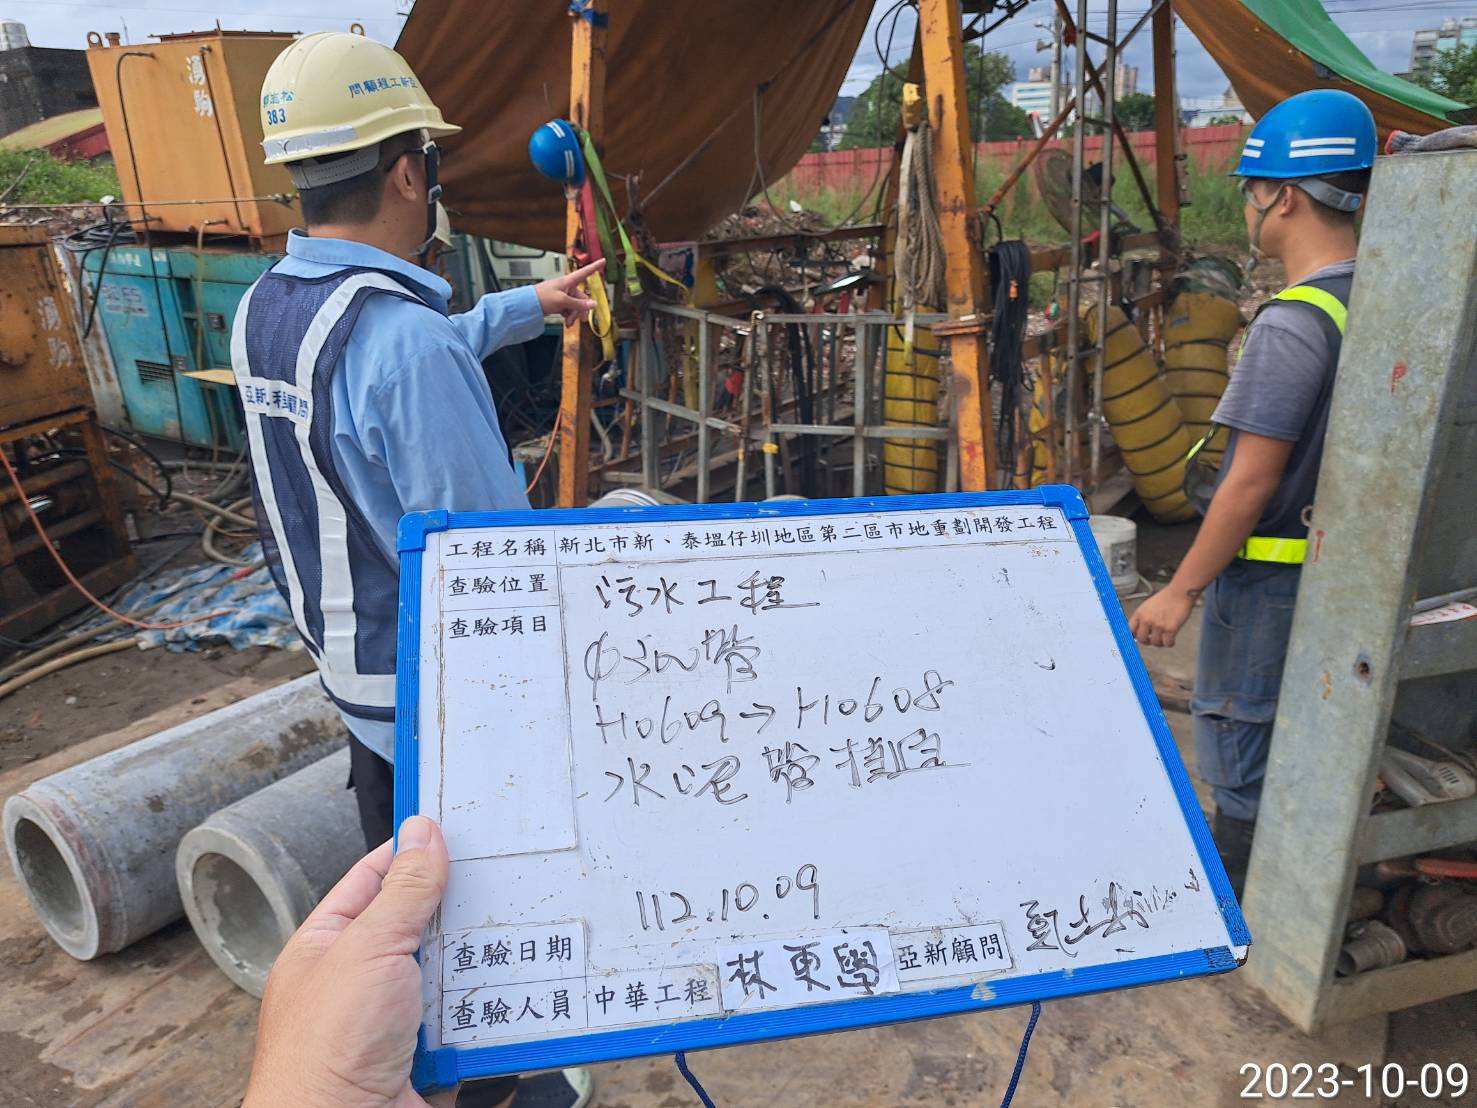 湧駒
383
亞新工程顧問
湧駒
亞新工程顧問
工程名稱 新北市新、泰塭仔圳地區第二區市地重劃開發工程
查驗位置 污水工程
查驗項目
φ500管
H0609→H0608
水泥管推進
查驗日期 112.10.09
查驗人員 中華工程 林東學 亞新顧問
2023-10-09